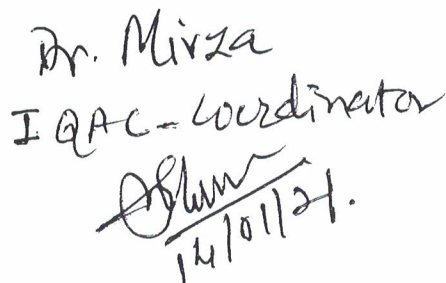 Dr. Mirza
IQAC-Coordinator
14/01/21.